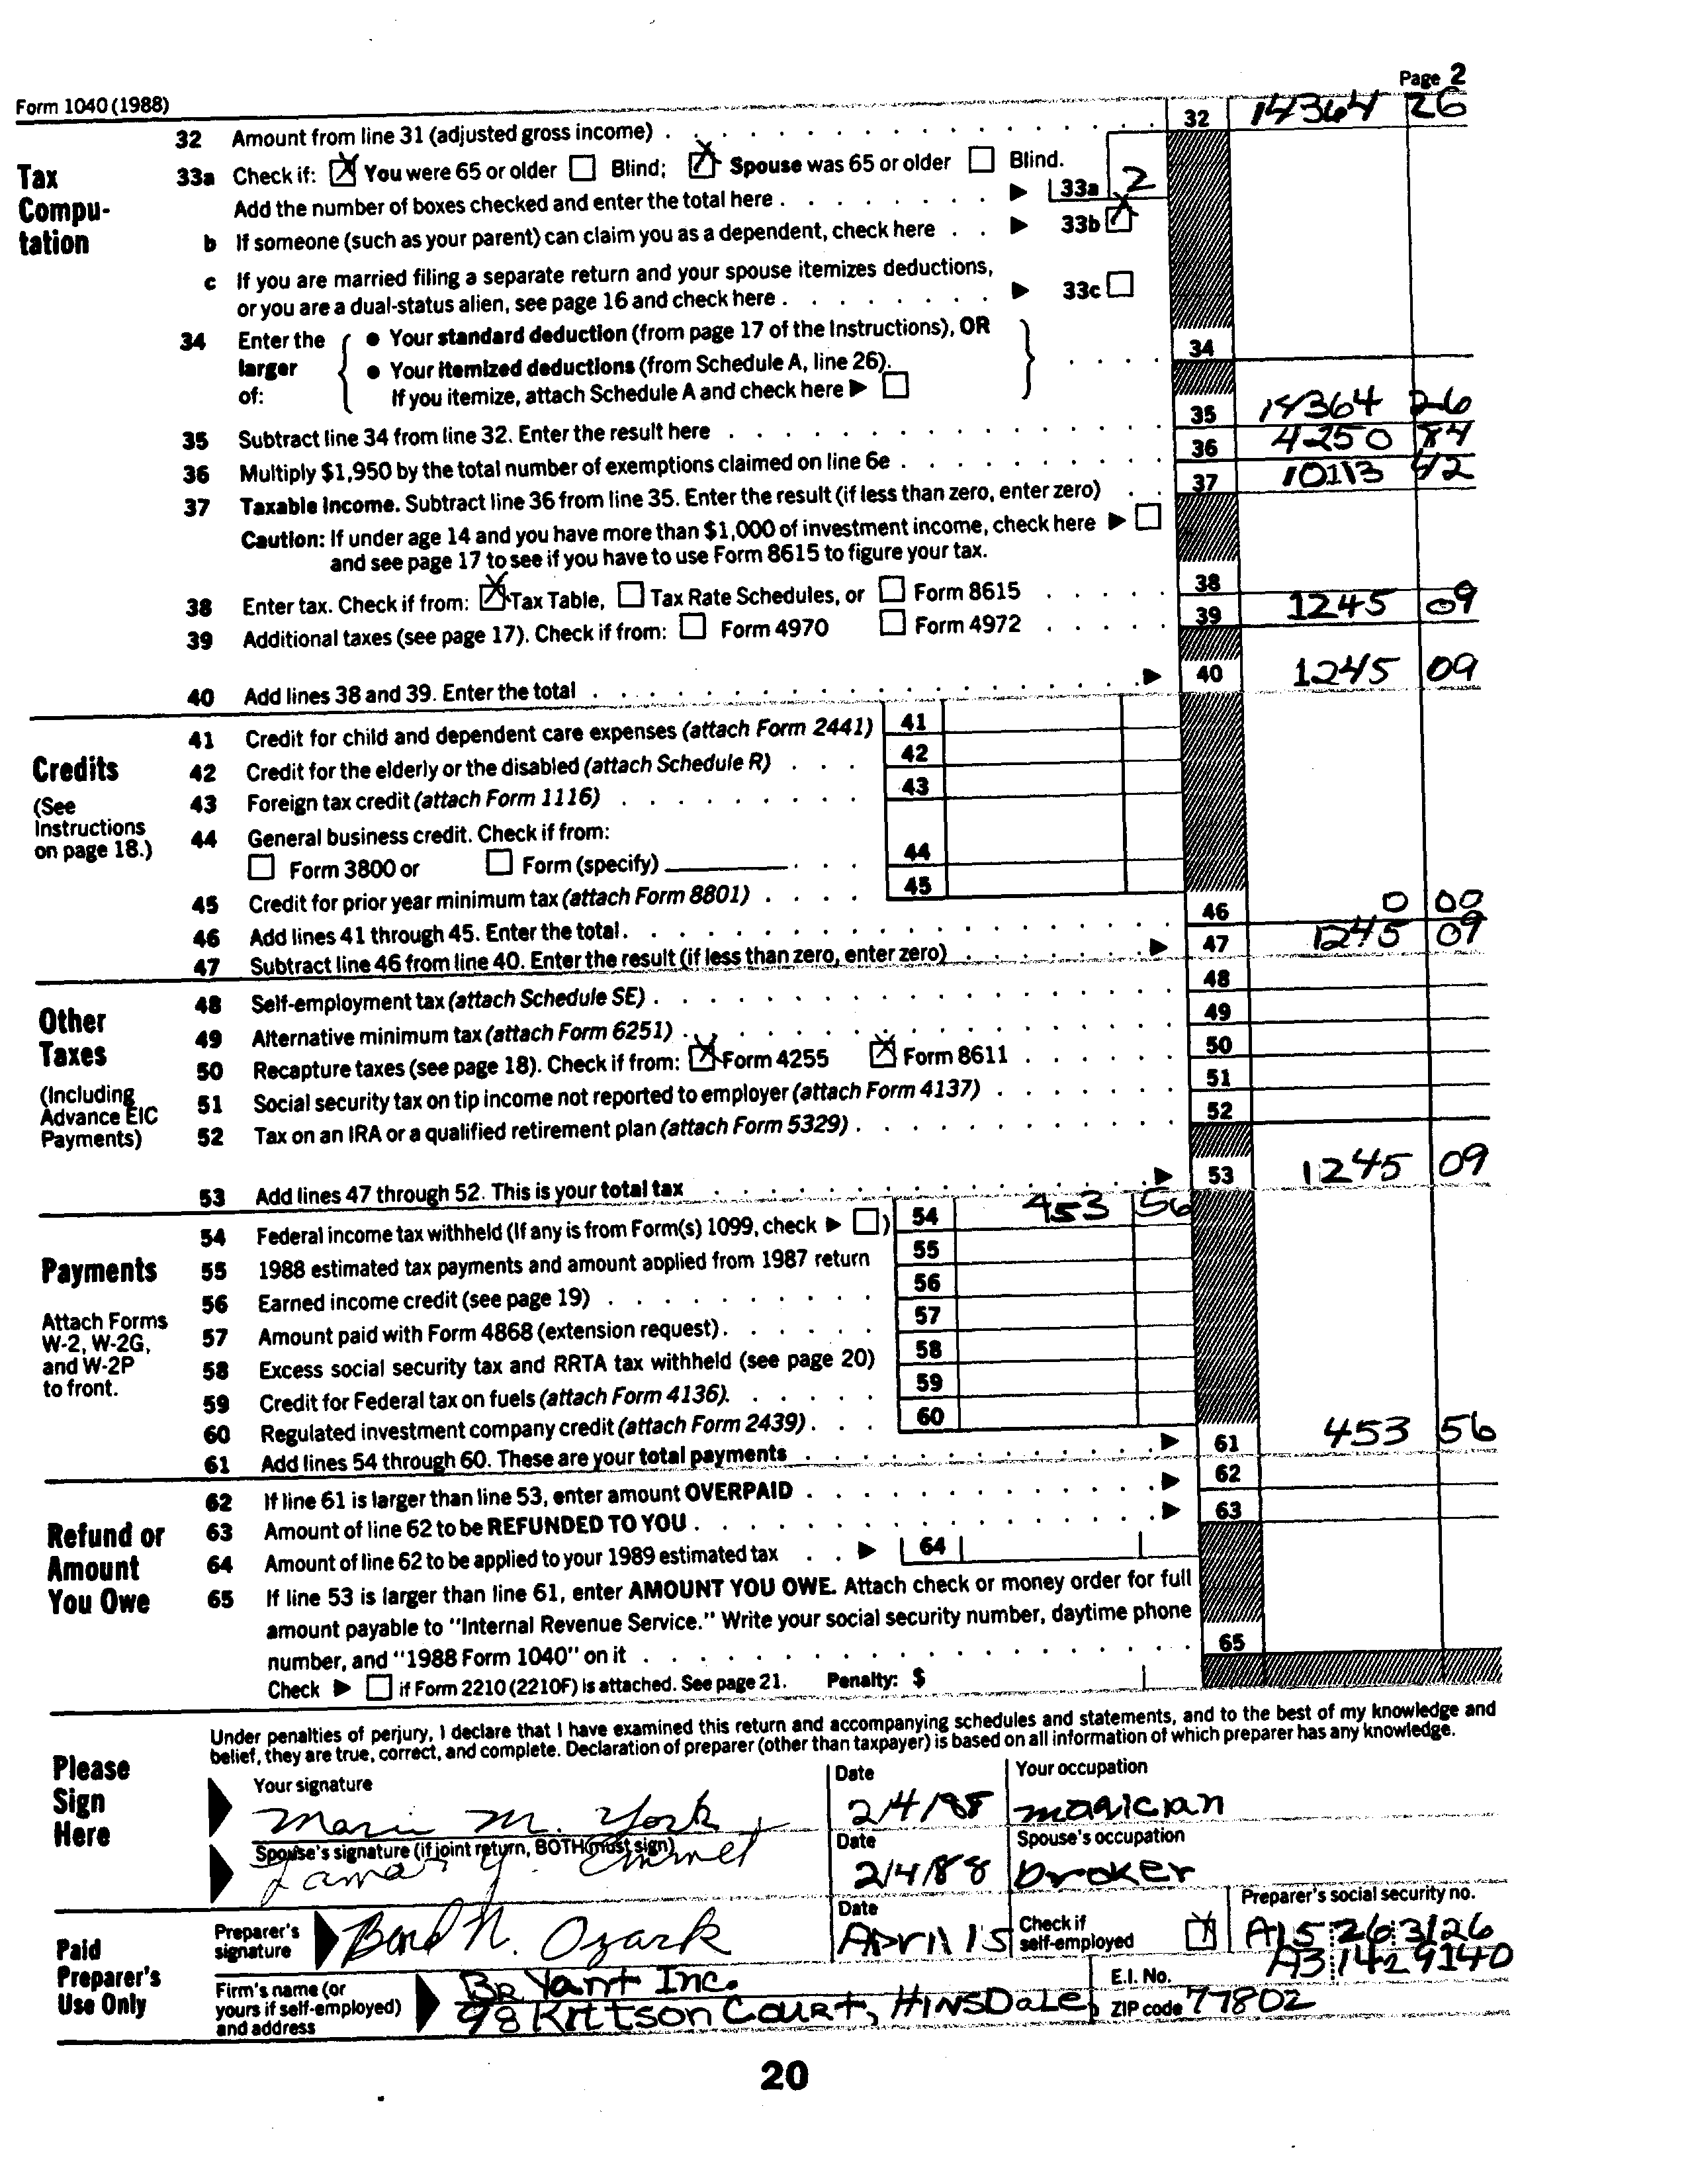 Page 2
Form 1040 (1988)
32 Amount from line 31 (adjusted gross income) 32 14364 26
Tax Compu-tation
33a Check if: X You were 65 or older Blind; X Spouse was 65 or older Blind.
Add the number of boxes checked and enter the total here 33a 2
b If someone (such as your parent) can claim you as a dependent, check here 33b X
c If you are married filing a separate return and your spouse itemizes deductions,
or you are a dual-status alien, see page 16 and check here 33c
34 Enter the larger of:
• Your standard deduction (from page 17 of the Instructions), OR
• Your itemized deductions (from Schedule A, line 26).
If you itemize, attach Schedule A and check here
34
35 Subtract line 34 from line 32. Enter the result here 35 14364 26
36 Multiply $1,950 by the total number of exemptions claimed on line 6e 36 4250 84
37 Taxable Income. Subtract line 36 from line 35. Enter the result (if less than zero, enter zero) 37 10113 42
Caution: If under age 14 and you have more than $1,000 of investment income, check here
and see page 17 to see if you have to use Form 8615 to figure your tax.
38 Enter tax. Check if from: X Tax Table, Tax Rate Schedules, or Form 8615 38
39 Additional taxes (see page 17). Check if from: Form 4970 Form 4972 39 1245 09
40 Add lines 38 and 39. Enter the total 40 1245 09
Credits
(See Instructions on page 18.)
41 Credit for child and dependent care expenses (attach Form 2441) 41
42 Credit for the elderly or the disabled (attach Schedule R) 42
43 Foreign tax credit (attach Form 1116) 43
44 General business credit. Check if from:
Form 3800 or Form (specify) 44
45 Credit for prior year minimum tax (attach Form 8801) 45
46 Add lines 41 through 45. Enter the total. 46 0 00
47 Subtract line 46 from line 40. Enter the result (if less than zero, enter zero) 47 1245 09
Other Taxes
(Including Advance EIC Payments)
48 Self-employment tax (attach Schedule SE) 48
49 Alternative minimum tax (attach Form 6251) 49
50 Recapture taxes (see page 18). Check if from: X Form 4255 X Form 8611 50
51 Social security tax on tip income not reported to employer (attach Form 4137) 51
52 Tax on an IRA or a qualified retirement plan (attach Form 5329) 52
53 Add lines 47 through 52. This is your total tax 53 1245 09
Payments
Attach Forms W-2, W-2G, and W-2P to front.
54 Federal income tax withheld (If any is from Form(s) 1099, check ) 54 453 56
55 1988 estimated tax payments and amount applied from 1987 return 55
56 Earned income credit (see page 19) 56
57 Amount paid with Form 4868 (extension request) 57
58 Excess social security tax and RRTA tax withheld (see page 20) 58
59 Credit for Federal tax on fuels (attach Form 4136). 59
60 Regulated investment company credit (attach Form 2439) 60
61 Add lines 54 through 60. These are your total payments 61 453 56
Refund or Amount You Owe
62 If line 61 is larger than line 53, enter amount OVERPAID 62
63 Amount of line 62 to be REFUNDED TO YOU 63
64 Amount of line 62 to be applied to your 1989 estimated tax 64
65 If line 53 is larger than line 61, enter AMOUNT YOU OWE. Attach check or money order for full
amount payable to "Internal Revenue Service." Write your social security number, daytime phone
number, and "1988 Form 1040" on it 65
Check if Form 2210 (2210F) is attached. See page 21. Penalty: $
Please Sign Here
Under penalties of perjury, I declare that I have examined this return and accompanying schedules and statements, and to the best of my knowledge and
belief, they are true, correct, and complete. Declaration of preparer (other than taxpayer) is based on all information of which preparer has any knowledge.
Your signature Date Your occupation
M. York 2/4/88 magician
Spouse's signature (if joint return, BOTH must sign) Date Spouse's occupation
Lamar Y. Emmet 2/4/88 broker
Paid Preparer's Use Only
Preparer's signature N. Ozark
Date April 15
Check if self-employed X
Preparer's social security no.
A15 26 3126
Firm's name (or yours if self-employed) and address
BRYant Inc.
98 Kittson Court, HINSDale,
E.I. No. A3 1429140
ZIP code 77802
20